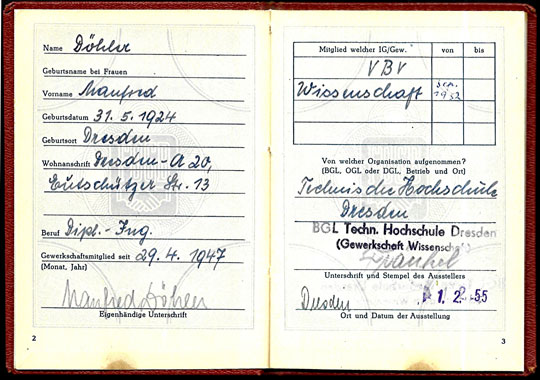 Name Döhler
Geburtsname bei Frauen
Vorname Manfred
Geburtsdatum 31. 5. 1924
Geburtsort Dresden
Wohnanschrift Dresden-A 20,
Eutschützer Str. 13
Beruf Dipl.-Ing.
Gewerkschaftsmitglied seit 29. 4. 1947
(Monat, Jahr)
Manfred Döhler
Eigenhändige Unterschrift
2
Mitglied welcher IG/Gew. von bis
VBV
Wissenschaft 1952
Von welcher Organisation aufgenommen?
(BGL, OGL oder DGL, Betrieb und Ort)
Technische Hochschule
Dresden
BGL Techn. Hochschule Dresden
(Gewerkschaft Wissenschaft)
Unterschrift und Stempel des Ausstellers
Dresden 1. 2. 55
Ort und Datum der Ausstellung
3